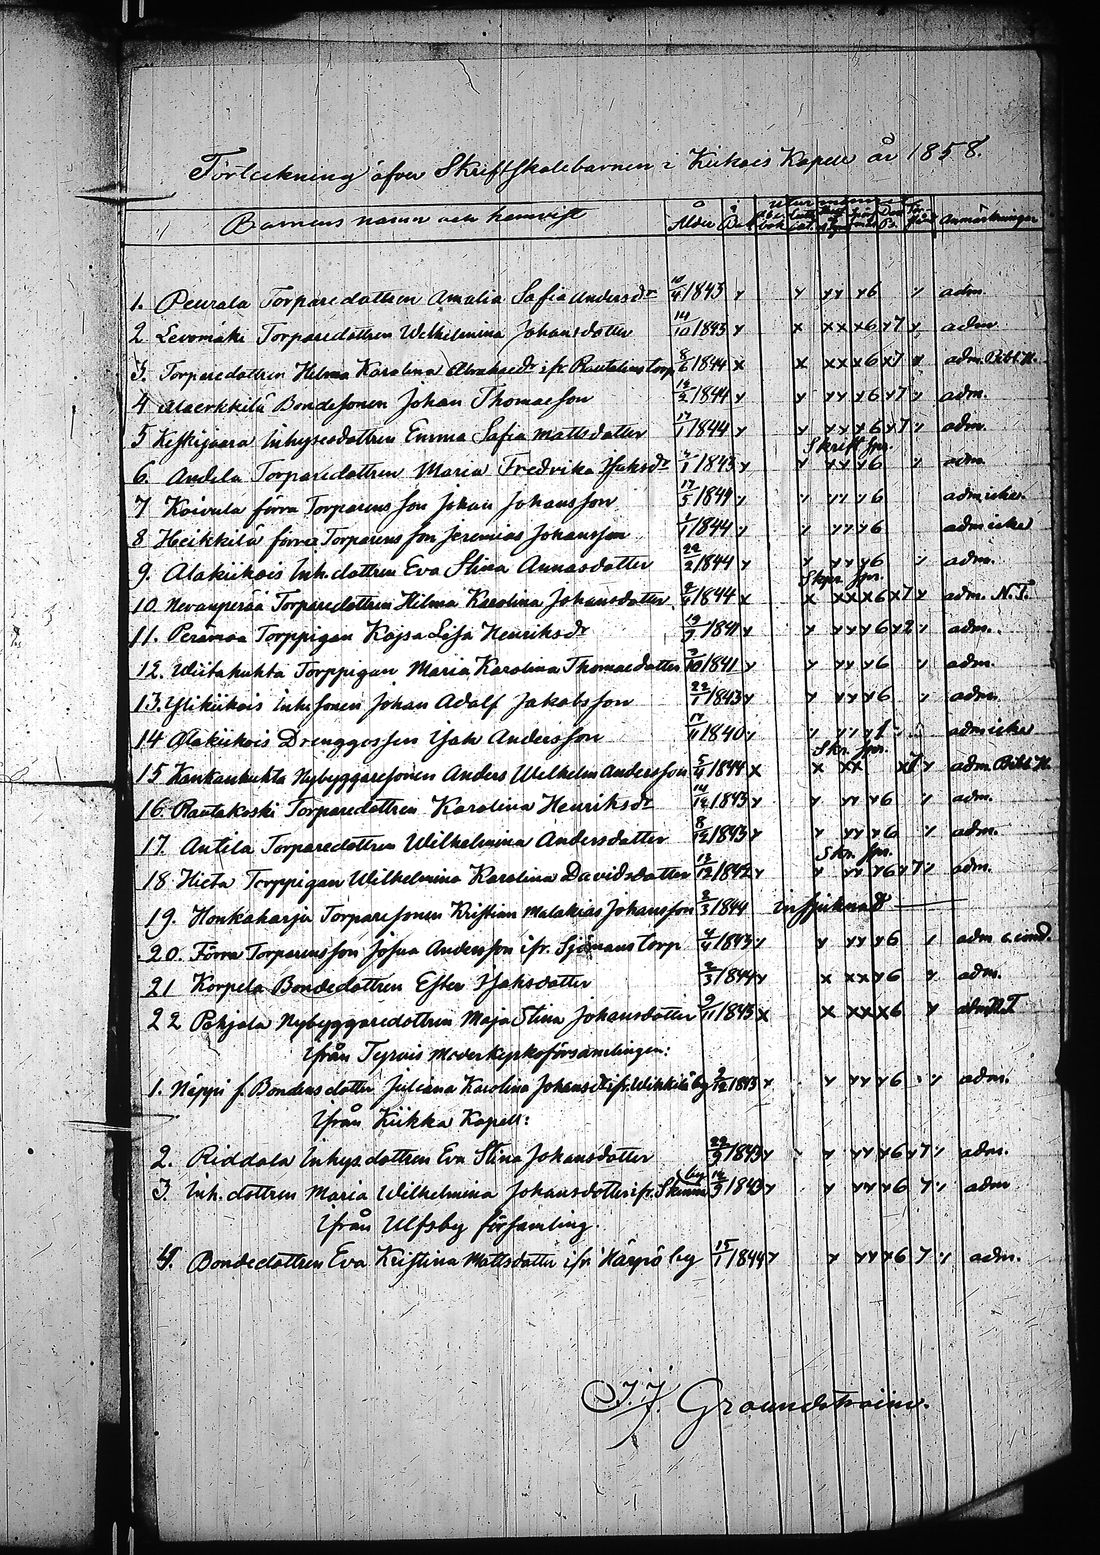 Förteckning öfver Skriftskolebarnen i Kiikois Kapell år 1858.
Barnens namn och hemvist Ålder Anmärkningar
1. Peurala Torparedottren Amalia Sofia Andersdr 10/4 1843 adm.
2 Levomäki Torparedottren Wilhelmina Johansdotter 14/10 1843 adm
3. Torparedottren Hilma Karolina Abrahasdr ifr Rautelins torp 8/6 1844 adm. Bibl. H.
4 Alaerkkilä Bondesonen Johan Thomasson 12/2 1844 adm.
5 Keskijaara Inhysesdottren Emma Sofia Mattsdotter 17/1 1844 adm.
Skrift spr.
6. Andela Torparedottren Maria Fredrika Isaksdr 1843 adm.
7 Koivula förra Torparens son Johan Johansson 17/5 1844 adm icke
8 Heikkilä förra Torparens son Jeremias Johansson 1844 adm icke
9. Alakiikois Inh. dottren Eva Stina Annasdotter 22/2 1844 adm.
Skr. spr.
10. Nevanperää Torparedottren Hilma Karolina Johansdotter 1844 adm. N.T.
11. Perämaa Torppigan Kajsa Lisa Henriksdr 19/9 1841 adm.
12. Wiitakuhta Torppigan Maria Karolina Thomasdotter 1841 adm.
13. Ylikiikois Inhssonen Johan Adolf Jakobsson 22/1 1843 adm.
14 Alakiikois Drenggossen Isak Andersson 17/11 1840 adm icke
Skr. spr.
15 Kankankuhta Nybyggaresonen Anders Wilhelm Andersson 1844 adm Bibl. H.
16. Rautakoski Torparedottren Karolina Henriksdr 14/12 1843 adm.
17. Antila Torparedottren Wilhelmina Andersdotter 8/12 1843 adm.
Skr. spr.
18. Hieta Torppigan Wilhelmina Karolina Davidsdotter 13/12 1842 adm.
19. Honkaharju Torparesonen Kristian Malakias Johansson 1844 insjuknad
20. Förra Torparensson Josua Andersson ifr. Sjömans torp 1843 adm c. cond.
21 Korpela Bondedottren Ester Isaksdotter 1844 adm.
22 Pohjala Nybyggaredottren Maja Stina Johansdotter 9/11 1843 adm N.T
Ifrån Tyrvis Moderkyrkoförsamlingen:
1. Näppi f. Bondens dotter Juliana Karolina Johansdr ifr. by 1843 adm.
Ifrån Kiikka Kapell:
2. Riddala Inhys. dottren Eva Stina Johansdotter 22/9 1843 adm.
3. Inh. dottren Maria Wilhelmina Johansdotter ifr. by 1843 adm
Ifrån Ulfsby församling.
4. Bondedottren Eva Kristina Mattsdotter ifr. by 15/1 1844 adm.
J. J. Groundstroem.